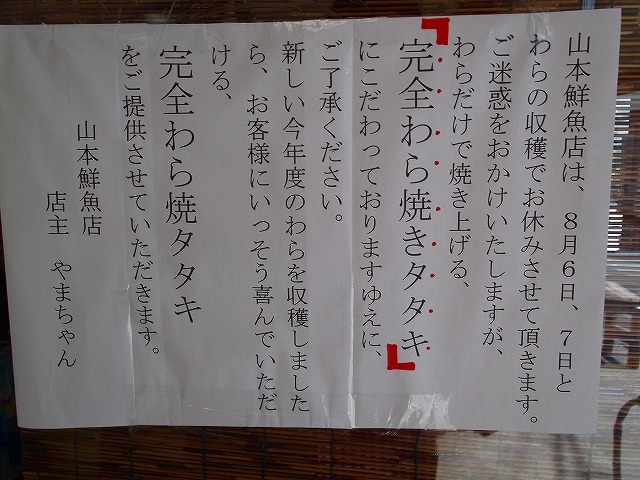 山本鮮魚店は、8月6日、7日と
わらの収穫でお休みさせて頂きます。
ご迷惑をおかけいたしますが、
わらだけで焼き上げる、
『完全わら焼きタタキ』
にこだわっておりますゆえに、
ご了承ください。
新しい今年度のわらを収穫しました
ら、お客様にいっそう喜んでいただ
ける、
完全わら焼タタキ
をご提供させていただきます。
山本鮮魚店
店主 やまちゃん